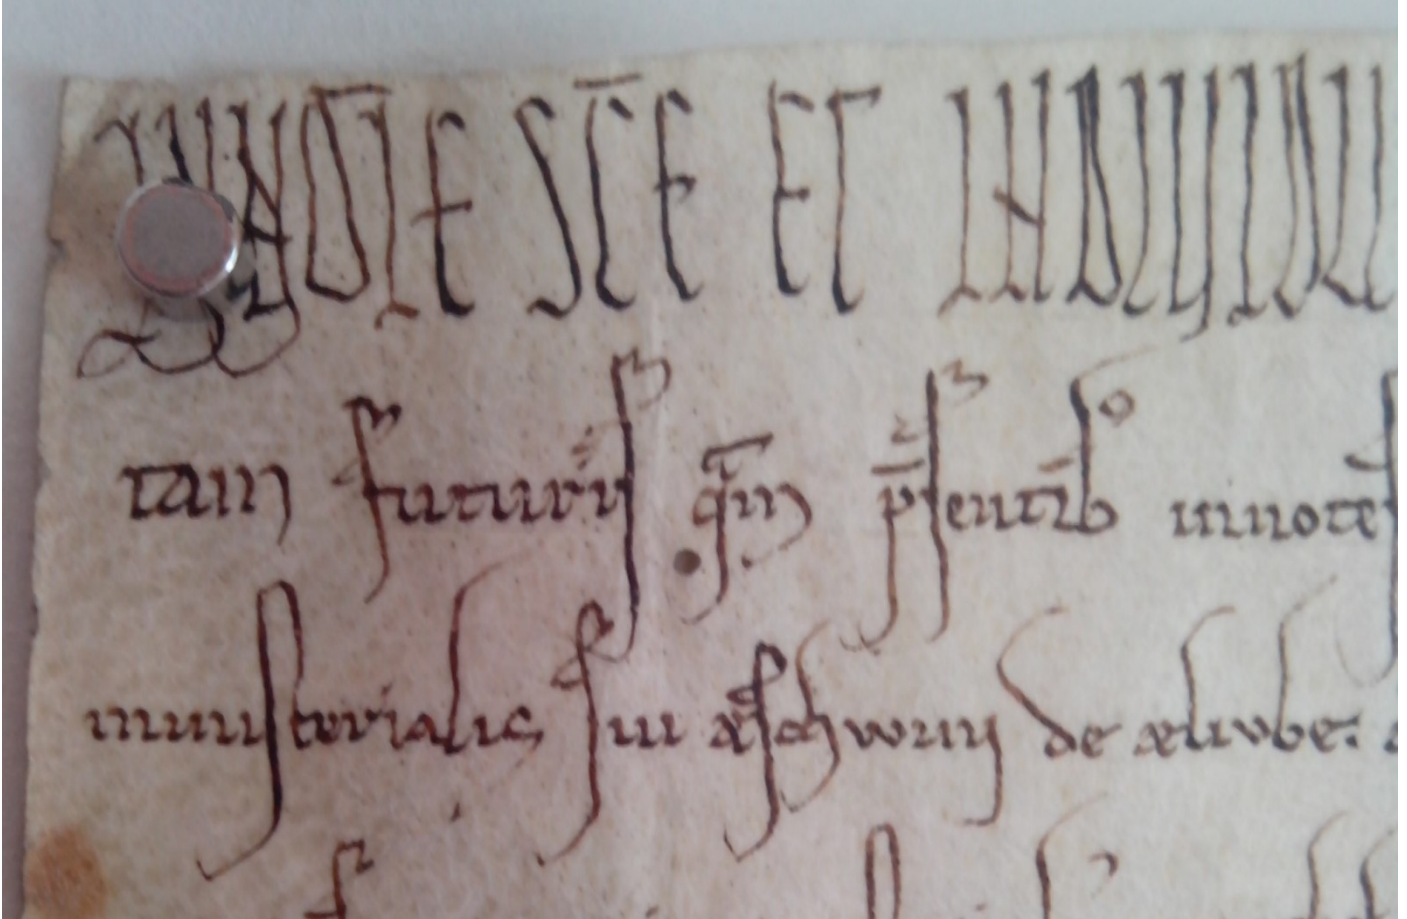 IN NOIE SCE ET INDIVIDU
tam futuris qm psentib innotes
ministerialis sui aschwini de ælivbe.